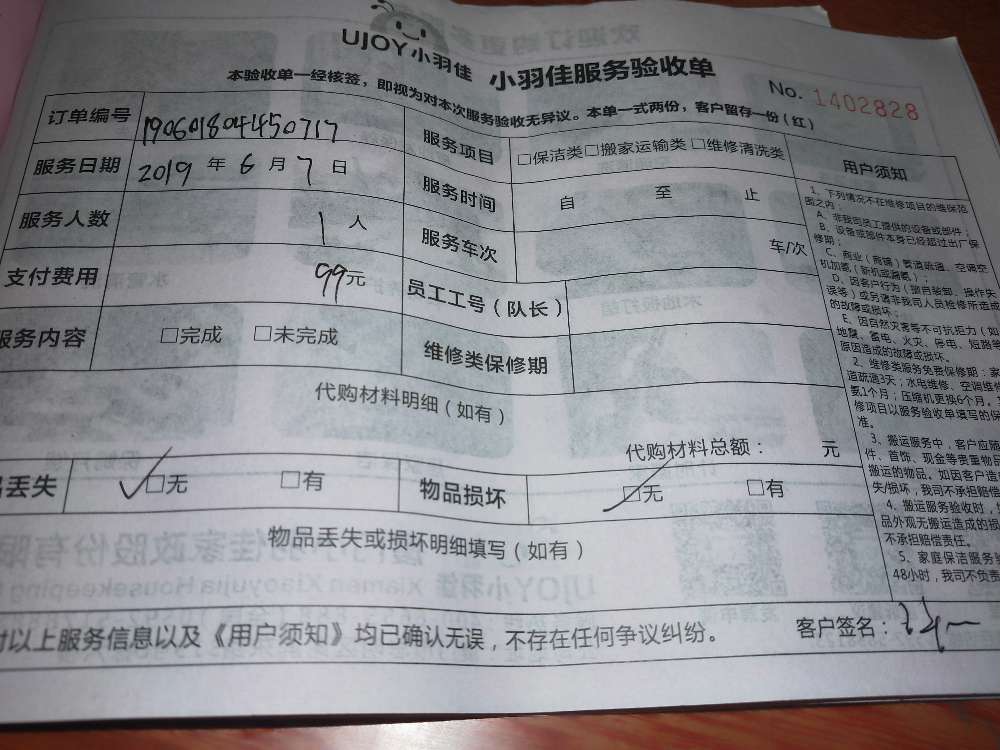 UJOY小羽佳 小羽佳服务验收单
No. 1402828
本验收单一经核签，即视为对本次服务验收无异议。本单一式两份，客户留存一份（红）
订单编号 190601804450717 服务项目 □保洁类□搬家运输类 □维修清洗类
服务日期 2019 年 6 月 7 日 服务时间 自 至 止
服务人数 1 人 服务车次 车/次
支付费用 99元 员工工号（队长）
服务内容 □完成 □未完成 维修类保修期
代购材料明细（如有）
代购材料总额： 元
丢失 ✓□无 □有 物品损坏 □无 □有
物品丢失或损坏明细填写（如有）
以上服务信息以及《用户须知》均已确认无误，不存在任何争议纠纷。 客户签名：
用户须知
1、下列情况不在维修项目的维保范
围之内：
A、非我司员工提供的设备或部件；
B、设备或部件本身已经超过出厂保
修期；
C、商业（商铺）管道疏通、空调空
机加氨（新机或漏氨）；
D、因客户行为（擅自装卸、操作失
误等）或另请非我司人员检修所造成
的故障或损坏；
E、因自然灾害等不可抗拒力（如
地震、蓄电、火灾、停电、短路等
原因造成的故障或损坏。
2、维修类服务免费保修期：家
道疏通3天；水电维修、空调维修
氨1个月；压缩机更换6个月。
修项目以服务验收单填写的保
准。
3、搬运服务中，客户应随
件、首饰、现金等贵重物品
搬运的物品。如因客户遗
失/损坏，我司不承担赔偿
4、搬运服务验收时，
品外观无搬运造成的损
不承担赔偿责任。
5、家庭保洁服务验
48小时，我司不负责